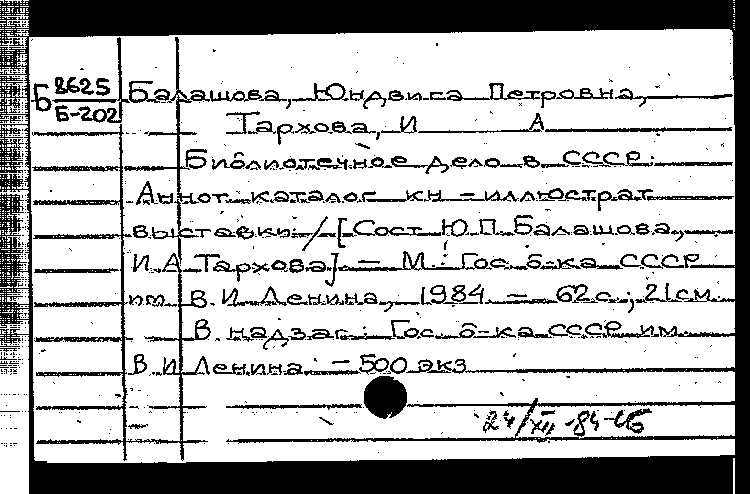 Б 8625 Балашова, Юндвига Петровна,
Б-202
Тархова, И А
Библиотечное дело в СССР:
Аннот. каталог кн -иллюстрат
выставки / [Сост Ю.П. Балашова,
И.А Тархова]. - М.: Гос. б-ка СССР
им В.И Ленина, 1984 - 62с.; 21см
В надзаг: Гос. б-ка СССР им.
В И Ленина - 500 экз
24/XII-84-